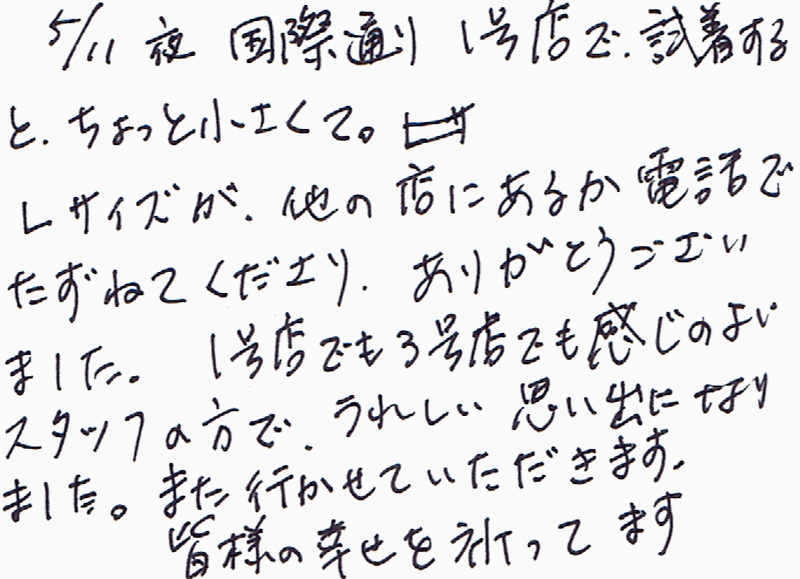 5/11 夜 国際通り 1号店で、試着する
と、ちょっと小さくて。
Lサイズが、他の店にあるか電話で
たずねてくださり、ありがとうござい
ました。1号店でも3号店でも感じのよい
スタッフの方で、うれしい思い出になり
ました。また行かせていただきます。
皆様の幸せを祈ってます